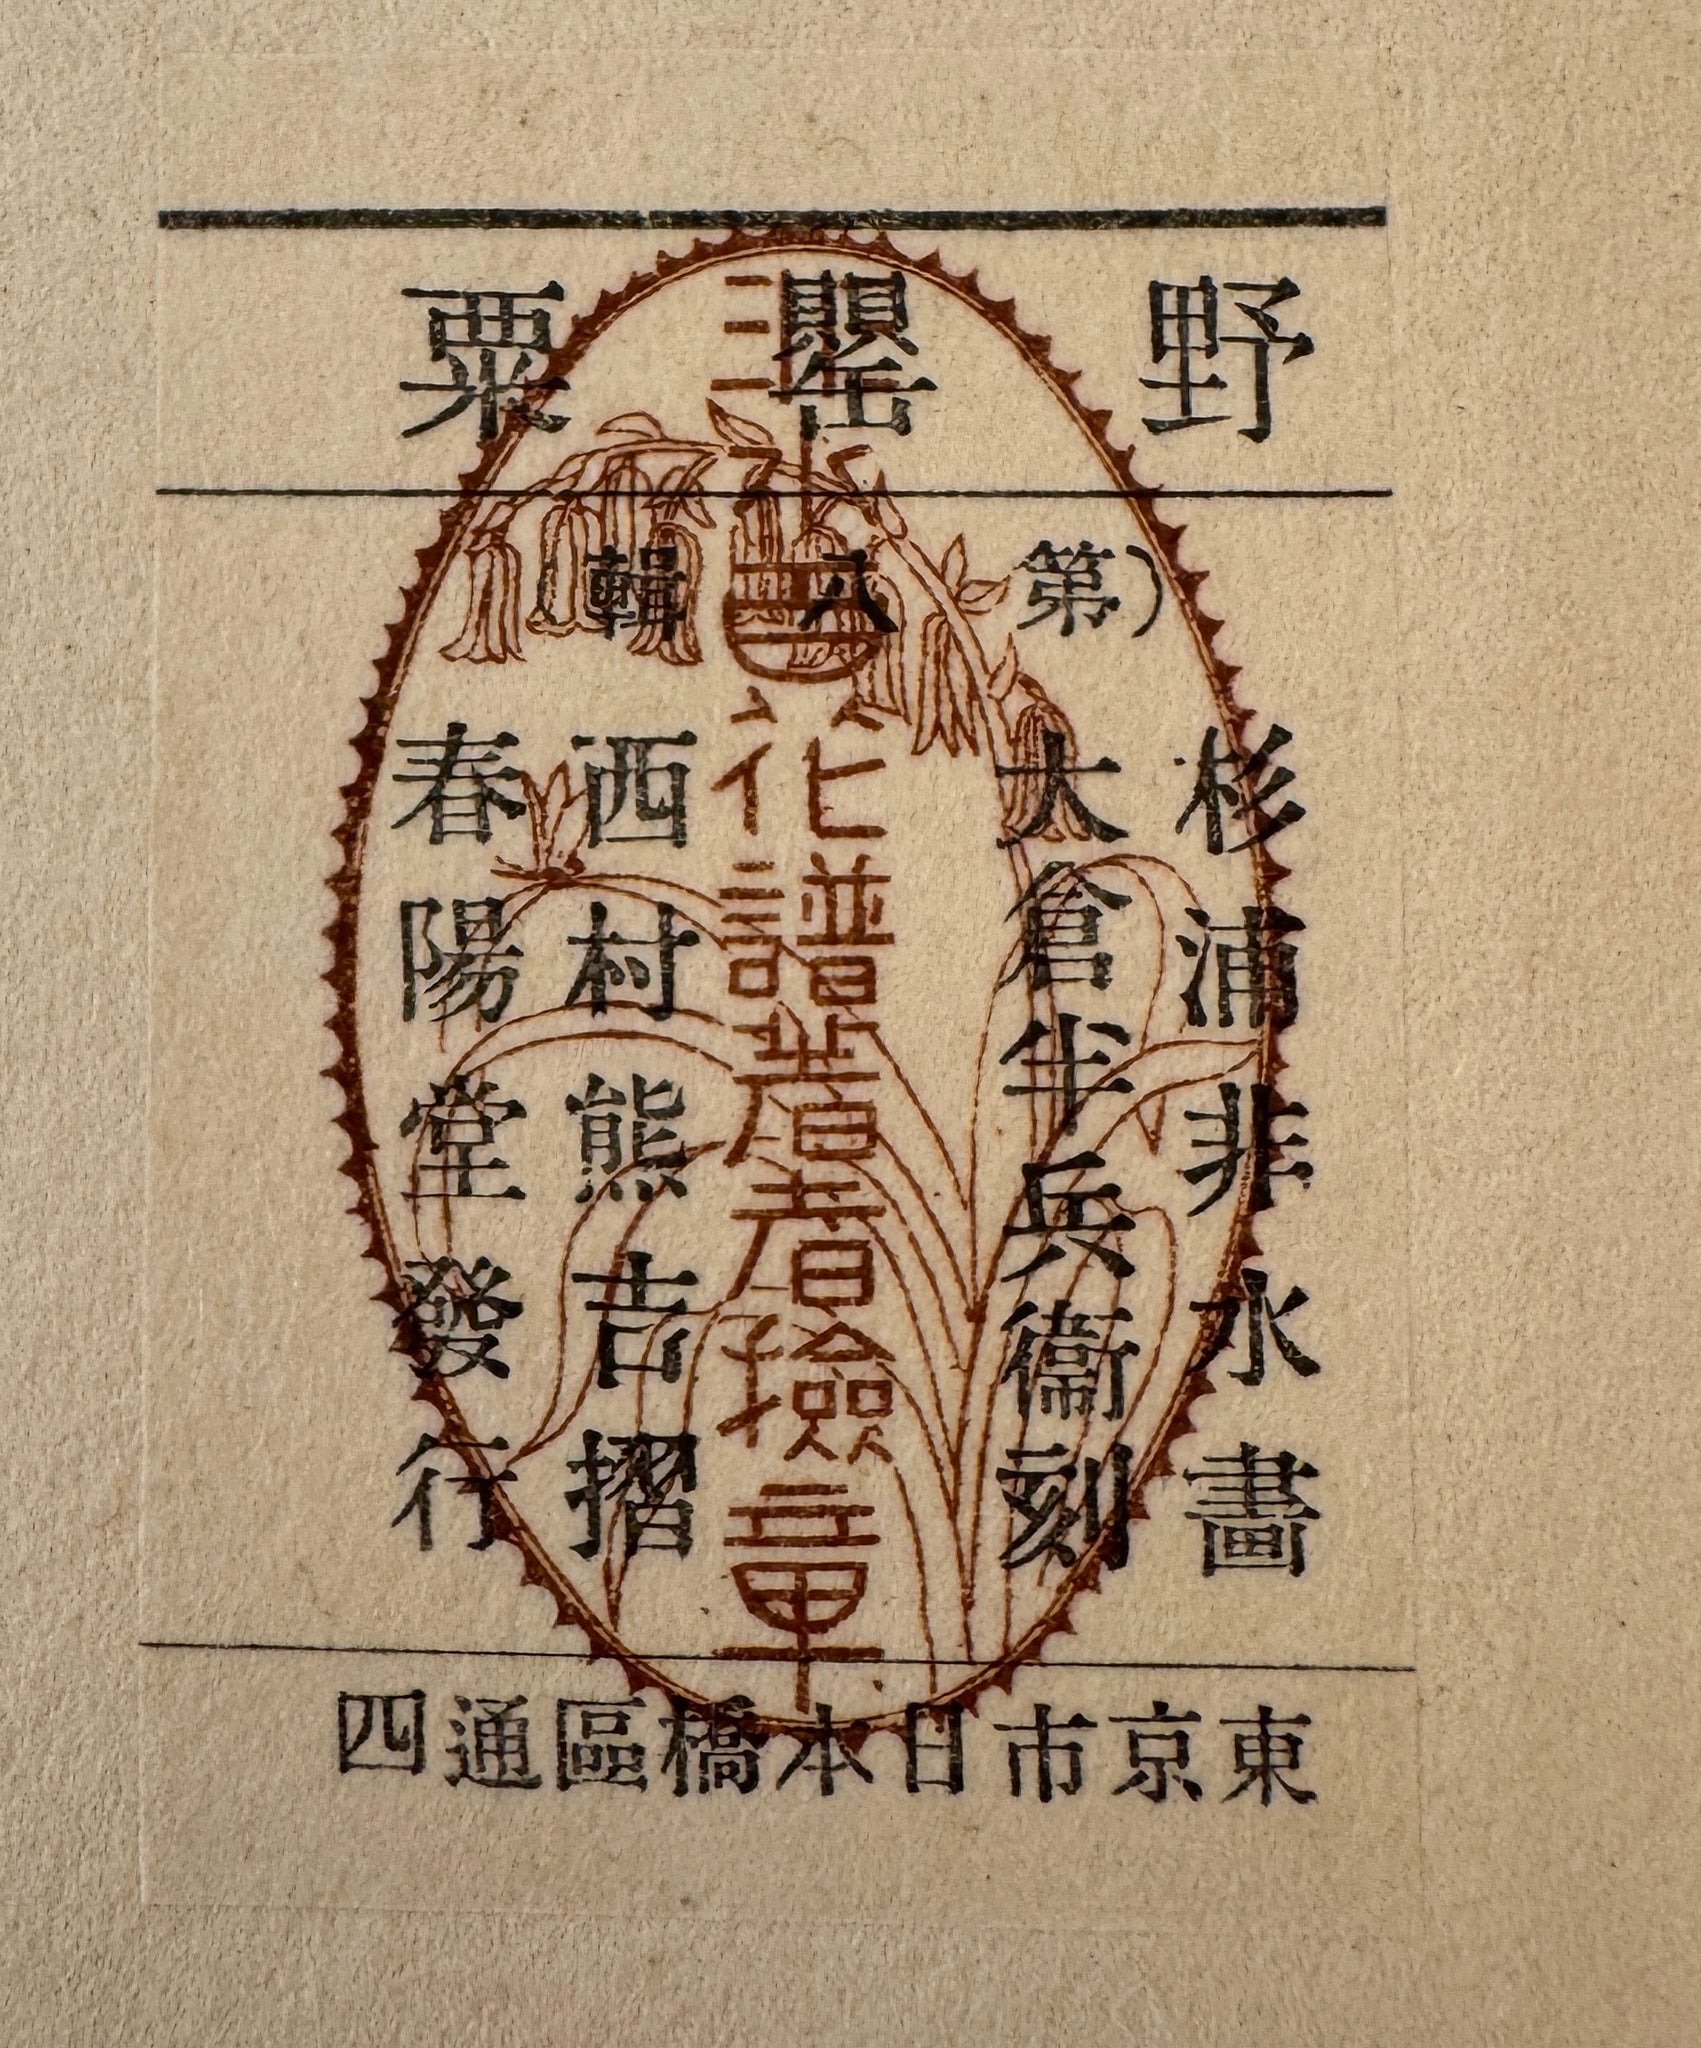 野罌粟
(第輯
杉浦非水畫
大倉半兵衞刻
西村熊吉摺
春陽堂發行
東京市日本橋區通四
非水百花譜著者撿章